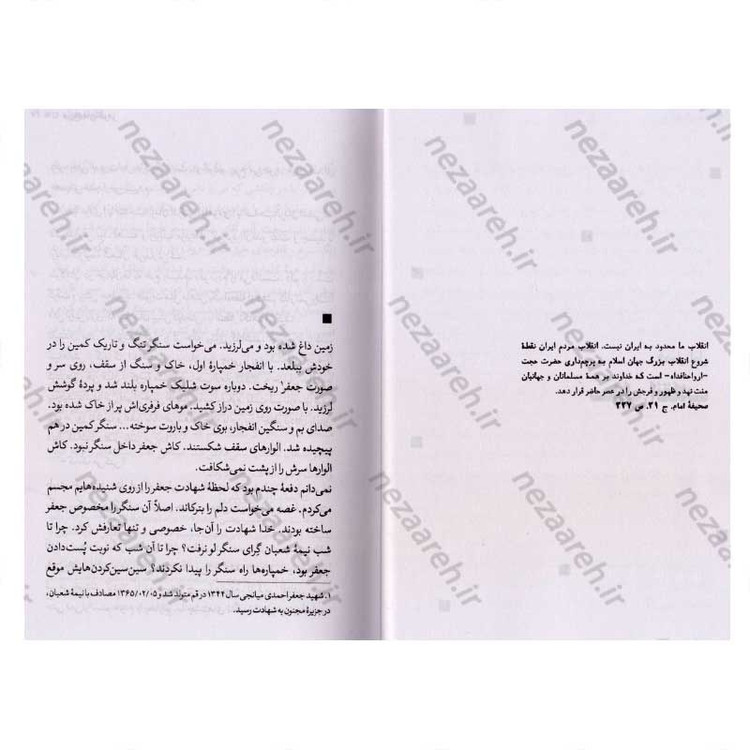 انقلاب ما محدود به ایران نیست. انقلاب مردم ایران نقطهٔ
شروع انقلاب بزرگ جهان اسلام به پرچم‌داری حضرت حجت
-ارواحنافداه- است که خداوند بر همهٔ مسلمانان و جهانیان
منت نهد و ظهور و فرجش را در عصر حاضر قرار دهد.
صحیفهٔ امام، ج ۲۱، ص ۳۲۷
زمین داغ شده بود و می‌لرزید. می‌خواست سنگر تنگ و تاریک کمین را در
خودش ببلعد. با انفجار خمپارهٔ اول، خاک و سنگ از سقف، روی سر و
صورت جعفر۱ ریخت. دوباره سوت شلیک خمپاره بلند شد و پردهٔ گوشش
لرزید. با صورت روی زمین دراز کشید. موهای فرفری‌اش پر از خاک شده بود.
صدای بم و سنگین انفجار، بوی خاک و باروت سوخته... سنگر کمین در هم
پیچیده شد. الوارهای سقف شکستند. کاش جعفر داخل سنگر نبود. کاش
الوارها سرش را از پشت نمی‌شکافت.
نمی‌دانم دفعهٔ چندم بود که لحظهٔ شهادت جعفر را از روی شنیده‌هایم مجسم
می‌کردم. غصه می‌خواست دلم را بترکاند. اصلاً آن سنگر را مخصوص جعفر
ساخته بودند. خدا شهادت را آن‌جا، خصوصی و تنها تعارفش کرد. چرا تا
شب نیمهٔ شعبان گرای سنگر لو نرفت؟ چرا تا آن شب که نوبت پُست‌دادن
جعفر بود، خمپاره‌ها راه سنگر را پیدا نکردند؟ سین‌سین‌کردن‌هایش موقع
۱. شهید جعفر احمدی میانجی سال ۱۳۴۲ در قم متولد شد و ۱۳۶۵/۰۲/۰۵ مصادف با نیمهٔ شعبان،
در جزیرهٔ مجنون به شهادت رسید.
nezaareh.ir
nezaareh.ir
nezaareh.ir
nezaareh.ir
nezaareh.ir
nezaareh.ir
nezaareh.ir
nezaareh.ir
nezaareh.ir